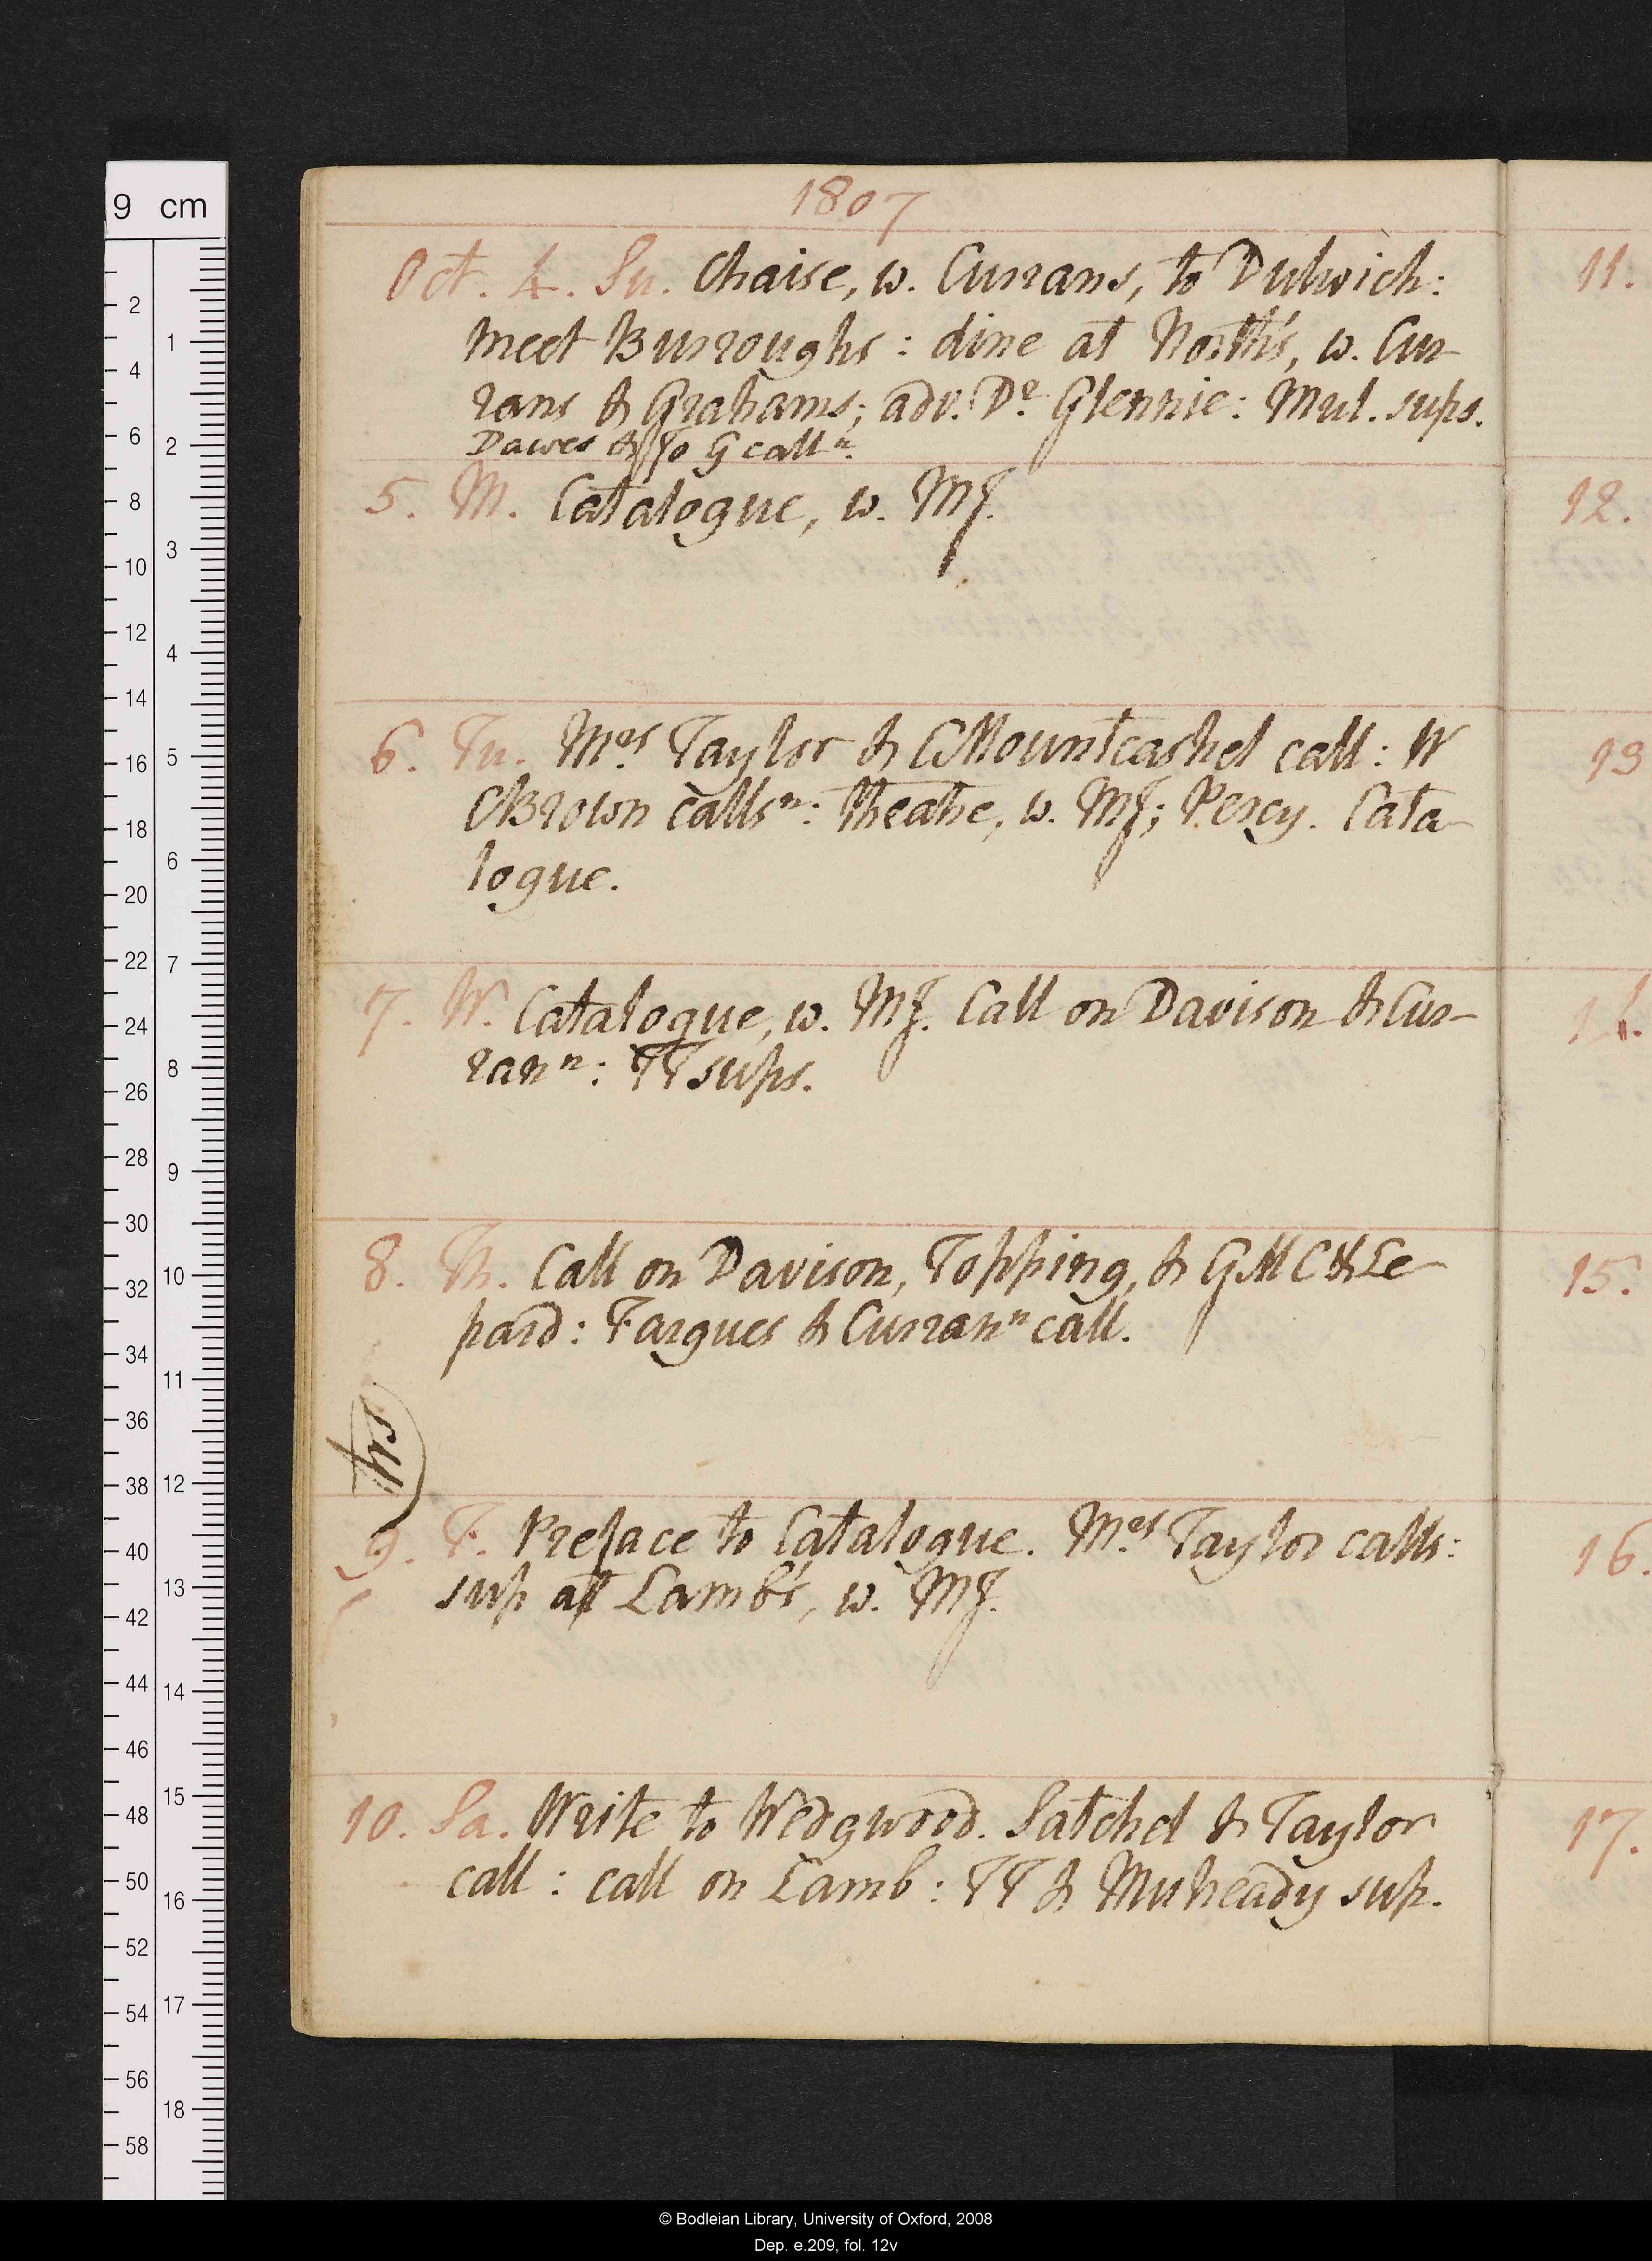 1807
Oct. 4. Su. Chaise, w. Currans, to Dulwich:
meet Burroughs: dine at North's, w. Cur-
rans & Grahams; adv. Dr. Glennie: Mul. sups.
Dawes & Jo G call n.
5. M. Catalogue, w. MJ.
6. Tu. Mrs Taylor & CMountcashel call: W
CBrown calls n: theatre, w. MJ; Percy. Cata-
logue.
7. W. Catalogue, w. MJ. Call on Davison & Cur-
ran n: TT sups.
8. Th. Call on Davison, Topping, & GMC & Le-
pard: Fargues & Curran n call.
9. F. Preface to Catalogue. Mrs Taylor calls:
sup at Lamb's, w. MJ.
10. Sa. Write to Wedgwood. Satchel & Taylor
call: call on Lamb: TT & Muheady sup.
11.
12.
13
14.
15.
16.
17.
9 cm
2
4
6
8
10
12
14
16
18
20
22
24
26
28
30
32
34
36
38
40
42
44
46
48
50
52
54
56
58
1
2
3
4
5
6
7
8
9
10
11
12
13
14
15
16
17
18
© Bodleian Library, University of Oxford, 2008
Dep. e.209, fol. 12v